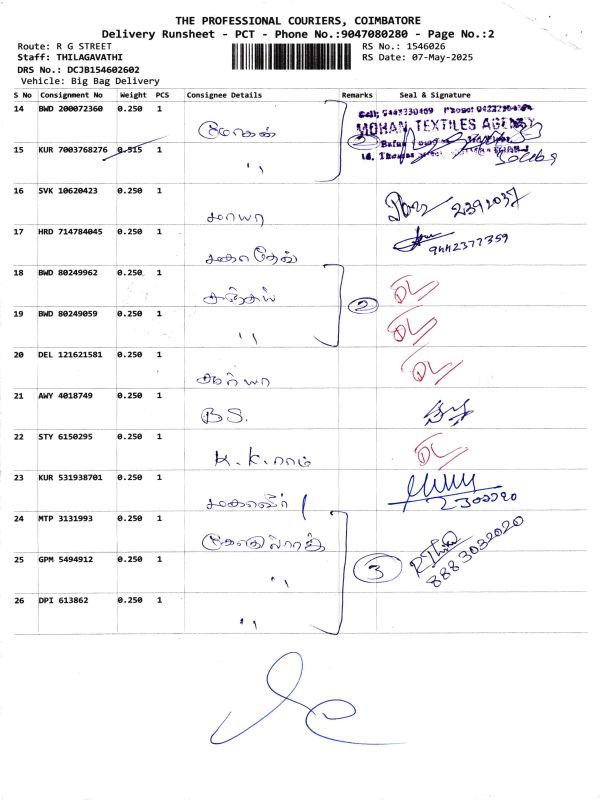 THE PROFESSIONAL COURIERS, COIMBATORE
Delivery Runsheet - PCT - Phone No.:9047080280 - Page No.:2
Route: R G STREET
RS No.: 1546026
Staff: THILAGAVATHI
RS Date: 07-May-2025
DRS No.: DCJB154602602
Vehicle: Big Bag Delivery
S No Consignment No Weight PCS Consignee Details Remarks Seal & Signature
14 BWD 200072360 0.250 1
MOHAN TEXTILES AGENCY
15 KUR 7003768276 0.515 1 ''
16 SVK 10620423 0.250 1 மாயா
17 HRD 714784045 0.250 1 மகாதேவ் 9442377359
18 BWD 80249962 0.250 1 சஞ்சய் 2 DL
19 BWD 80249059 0.250 1 '' DL
20 DEL 121621581 0.250 1 DL
21 AWY 4018749 0.250 1 B S.
22 STY 6150295 0.250 1 K.K.ராம் DL
23 KUR 531938701 0.250 1 மகாவீர்
24 MTP 3131993 0.250 1
25 GPM 5494912 0.250 1 '' 3 8883032020
26 DPI 613862 0.250 1 ''